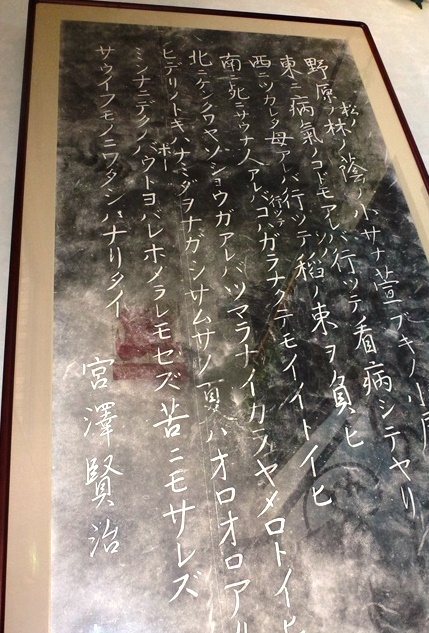 野原ノ松ノ林ノ蔭ノ小サナ萱ブキノ小
東ニ病氣ノコドモアレバ行ッテ看病シテヤリ
西ニツカレタ母アレバ行ッテソノ稲ノ束ヲ負ヒ
南ニ死ニサウナ人アレバ行ッテコハガラナクテモイイトイヒ
北ニケンクワヤソショウガアレバツマラナイカラヤメロトイヒ
ヒデリノトキハナミダヲナガシサムサノ夏ハオロオロアル
ミンナニデクノボートヨバレホメラレモセズ苦ニモサレズ
サウイフモノニワタシハナリタイ
宮澤賢治